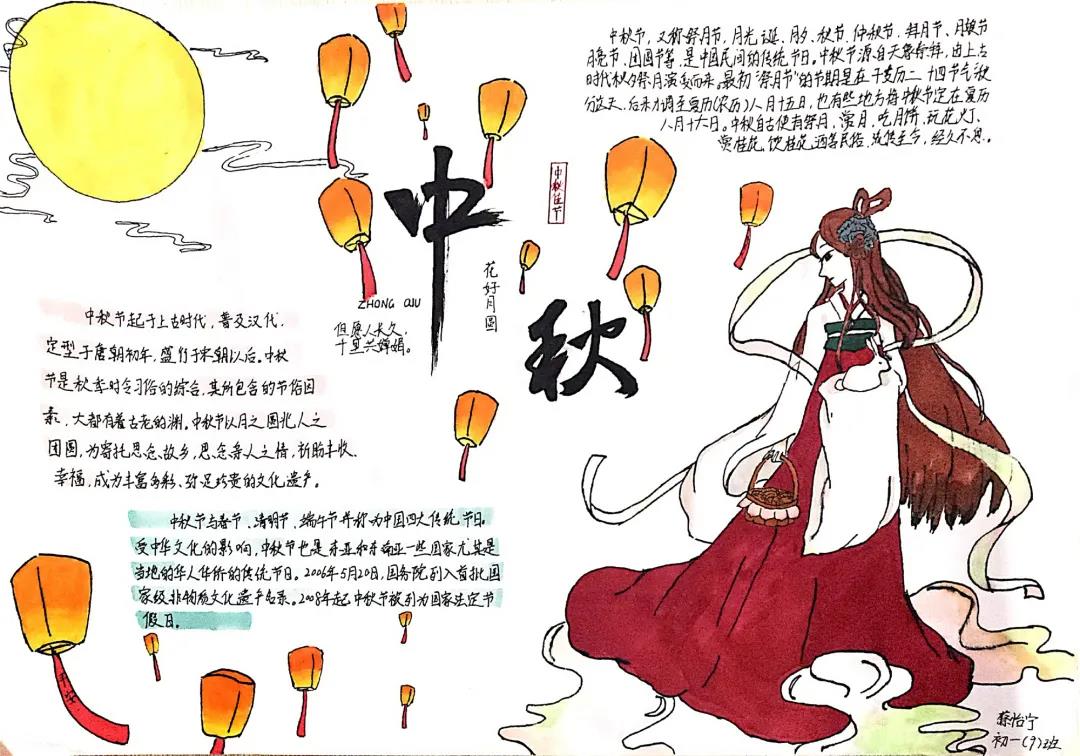 中秋节，又称祭月节、月光诞、月夕、秋节、仲秋节、拜月节、月娘节
月亮节、团圆节等，是中国民间的传统节日。中秋节源自天象崇拜，由上古
时代秋夕祭月演变而来。最初“祭月节”的节期是在干支历二十四节气“秋
分这天，后来才调至夏历（农历）八月十五日，也有些地方将中秋节定在夏历
八月十六日。中秋自古便有祭月、赏月、吃月饼、玩花灯、
赏桂花、饮桂花酒等民俗，流传至今，经久不息。
中秋佳节
中
秋
花好月圆
ZHONG QIU
但愿人长久，
千里共婵娟。
中秋节起于上古时代，普及汉代，
定型于唐朝初年，盛行于宋朝以后。中秋
节是秋季时令习俗的综合，其所包含的节俗因
素，大都有着古老的渊。中秋节以月之圆兆人之
团圆，为寄托思念故乡，思念亲人之情，祈盼丰收、
幸福，成为丰富多彩、弥足珍贵的文化遗产。
中秋节与春节、清明节、端午节并称为中国四大传统节日。
受中华文化的影响，中秋节也是东亚和东南亚一些国家尤其是
当地的华人华侨的传统节日。2006年5月20日，国务院列入首批国
家级非物质文化遗产名录。2008年起中秋节被列为国家法定节
假日。
蔡怡宁
初一（9）班